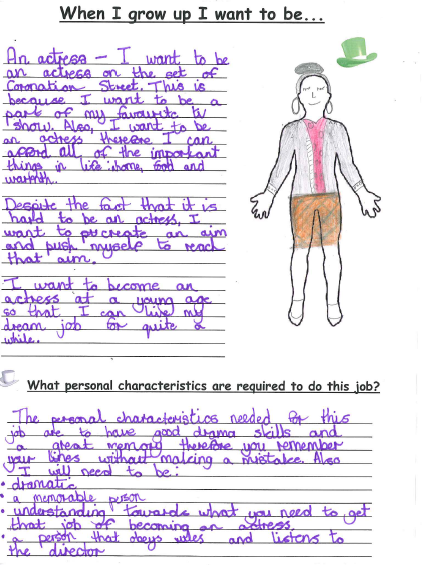 When I grow up I want to be...
An actress – I want to be
an actress on the set of
Coronation Street. This is
because I want to be a
part of my favourite tv
show. Also, I want to be
an actress therefore I can
afford all of the important
things in life: home, food and
warmth.
Despite the fact that it is
hard to be an actress, I
want to create an aim
and push myself to reach
that aim.
I want to become an
actress at a young age
so that I can live my
dream job for quite a
while.
What personal characteristics are required to do this job?
The personal characteristics needed for this
job are to have good drama skills and
a great memory therefore you remember
your lines without making a mistake. Also
I will need to be:
• dramatic
• a memorable person
• understanding towards what you need to get
that job of becoming an actress.
• a person that obeys rules and listens to
the director